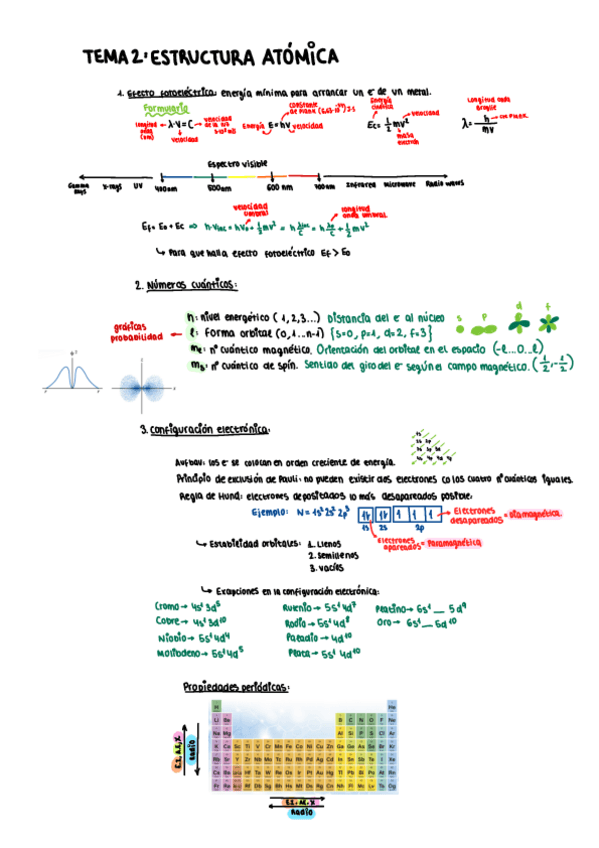 TEMA 2: ESTRUCTURA ATÓMICA
1. Efecto fotoeléctrico: energía mínima para arrancar un e⁻ de un metal.
Formulario
longitud onda (nm) λ·ν=C velocidad de la luz 3·10⁸ m/s
velocidad
Energía E=hν velocidad
constante de Planck (6,63·10⁻³⁴) J·s
Energía cinética Ec=1/2 mv² velocidad
masa electrón
Longitud onda
λ= h/mv
Espectro visible
Gamma rays X-rays UV 400nm 500nm 600 nm 700nm Infrared Microwave Radio waves
velocidad umbral
longitud onda umbral
Para que halla efecto fotoeléctrico Ef > E₀
2. Números cuánticos:
n: nivel energético (1,2,3...) Distancia del e⁻ al núcleo
l: forma orbital (0,1...n-1) {s=0, p=1, d=2, f=3}
s p d f
gráficas probabilidad
mℓ: nº cuántico magnético. Orientación del orbital en el espacio (-l...0...l)
ms: nº cuántico de spín. Sentido del giro del e⁻ según el campo magnético. (1/2,-1/2)
3. Configuración electrónica:
Aufbau: los e⁻ se colocan en orden creciente de energía.
Principio de exclusión de Pauli: no pueden existir dos electrones co los cuatro nº cuánticos iguales.
Regla de Hund: electrones depositados lo más desapareados posible.
Ejemplo: N = 1s² 2s² 2p³
1s 2s 2p
Electrones desapareados = diamagnética.
Electrones apareados = Paramagnética
Estabilidad orbitales: 1. Llenos
2. Semillenos
3. Vacíos
Exepciones en la configuración electrónica:
Cromo → 4s¹ 3d⁵ Rutenio → 5s¹ 4d⁷ Platino → 6s¹ __ 5d⁹
Cobre → 4s¹ 3d¹⁰ Rodio → 5s¹ 4d⁸ Oro → 6s¹ __ 5d¹⁰
Niobio → 5s¹ 4d⁴ Paladio → 4d¹⁰
Molibdeno → 5s¹ 4d⁵ Plata → 5s¹ 4d¹⁰
Propiedades periódicas:
E.I, A.E, X
Radio
E.I, A.E, X
Radio